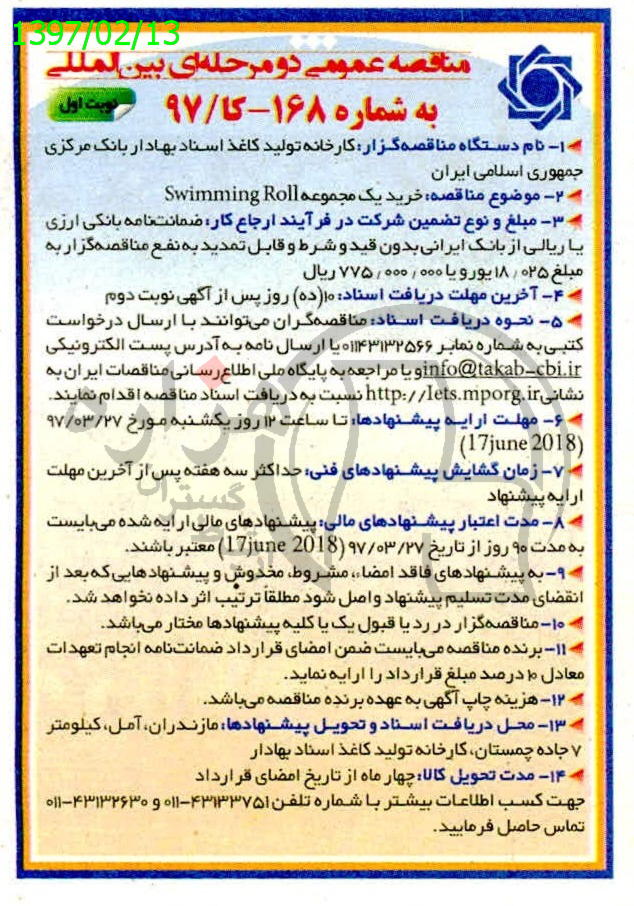 1397/02/13
مناقصه عمومی دو مرحله‌ای بین‌المللی
به شماره ۱۶۸-کا/۹۷
نوبت اول
۱- نام دستگاه مناقصه‌گزار: کارخانه تولید کاغذ اسناد بهادار بانک مرکزی
جمهوری اسلامی ایران
۲- موضوع مناقصه: خرید یک مجموعه Swimming Roll
۳- مبلغ و نوع تضمین شرکت در فرآیند ارجاع کار: ضمانت‌نامه بانکی ارزی
یا ریالی از بانک ایرانی بدون قید و شرط و قابل تمدید به نفع مناقصه‌گزار به
مبلغ ۱۸٫۰۲۵ یورو و یا ۷۷۵٫۰۰۰٫۰۰۰ ریال
۴- آخرین مهلت دریافت اسناد: ۱۰(ده) روز پس از آگهی نوبت دوم
۵- نحوه دریافت اسناد: مناقصه‌گران می‌توانند با ارسال درخواست
کتبی به شماره نمابر ۰۱۱۴۳۱۳۲۵۶۶ یا ارسال نامه به آدرس پست الکترونیکی
info@takab-cbi.ir و یا مراجعه به پایگاه ملی اطلاع‌رسانی مناقصات ایران به
نشانی http://Iets.mporg.ir نسبت به دریافت اسناد مناقصه اقدام نمایند.
۶- مهلت ارایه پیشنهادها: تا ساعت ۱۲ روز یکشنبه مورخ ۹۷/۰۳/۲۷
(17june 2018)
۷- زمان گشایش پیشنهادهای فنی: حداکثر سه هفته پس از آخرین مهلت
ارایه پیشنهاد
۸- مدت اعتبار پیشنهادهای مالی: پیشنهادهای مالی ارایه شده می‌بایست
به مدت ۹۰ روز از تاریخ ۹۷/۰۳/۲۷ (17june 2018) معتبر باشند.
۹- به پیشنهادهای فاقد امضاء، مشروط، مخدوش و پیشنهادهایی که بعد از
انقضای مدت تسلیم پیشنهاد واصل شود مطلقاً ترتیب اثر داده نخواهد شد.
۱۰- مناقصه‌گزار در رد یا قبول یک یا کلیه پیشنهادها مختار می‌باشد.
۱۱- برنده مناقصه می‌بایست ضمن امضای قرارداد ضمانت‌نامه انجام تعهدات
معادل ۱۰ درصد مبلغ قرارداد را ارایه نماید.
۱۲- هزینه چاپ آگهی به عهده برنده مناقصه می‌باشد.
۱۳- محل دریافت اسناد و تحویل پیشنهادها: مازندران، آمل، کیلومتر
۷ جاده چمستان، کارخانه تولید کاغذ اسناد بهادار
۱۴- مدت تحویل کالا: چهار ماه از تاریخ امضای قرارداد
جهت کسب اطلاعات بیشتر با شماره تلفن ۴۳۱۳۳۷۵۱-۰۱۱ و ۴۳۱۳۲۶۳۰-۰۱۱
تماس حاصل فرمایید.
هزاره
گستران